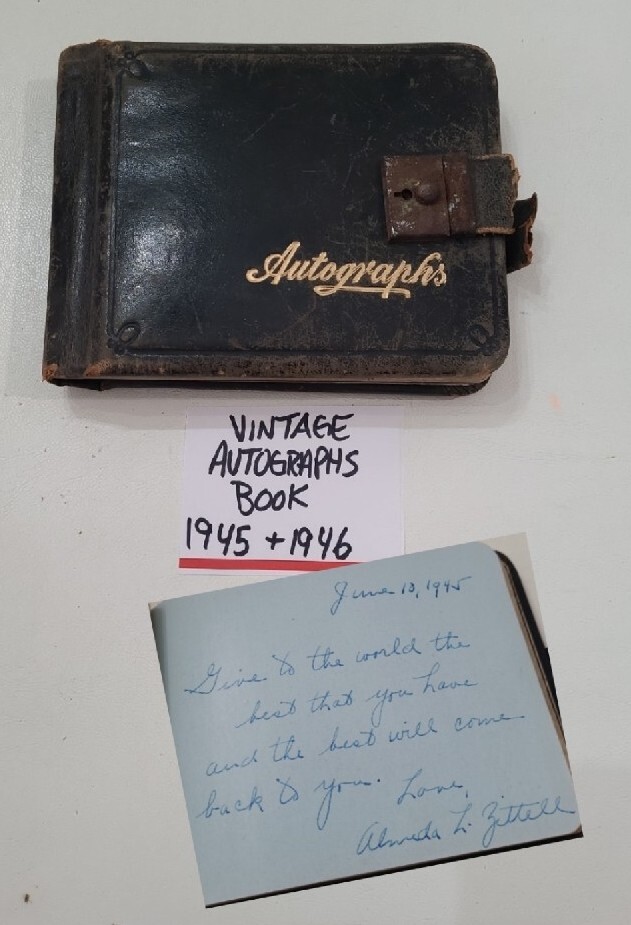 Autographs
VINTAGE
AUTOGRAPHS
BOOK
1945 + 1946
June 13, 1945
Give to the world the
best that you have
and the best will come
back to you.
Love,
Almeda L. Zittell